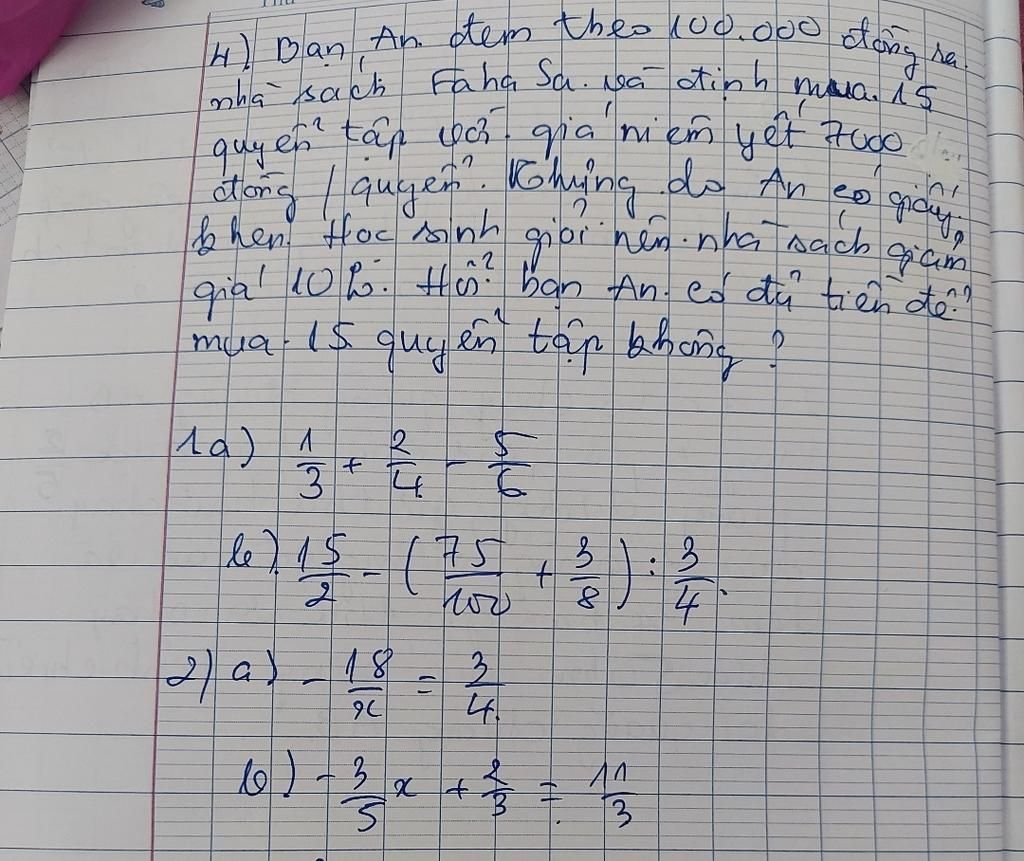 4) Bạn An. đem theo 100.000 đồng ra
nhà sách Faha Sa. và định mua. 15
quyển tập với giá niêm yết 7000
đồng / quyển. Nhưng do An có giấy
khen Học sinh giỏi nên nhà sách giảm
giá 10%. Hỏi bạn An có đủ tiền để
mua 15 quyển tập không?
1a) 1/3 + 2/4 - 5/6
b) 15/2 - (75/100 + 3/8) : 3/4.
2) a) - 18/x = 3/4
b) - 3/5 x + 2/3 = 11/3